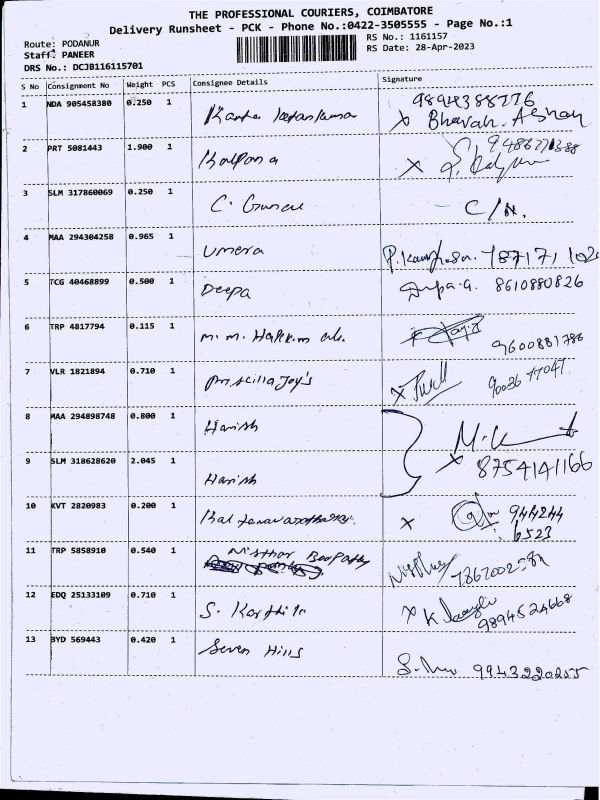 THE PROFESSIONAL COURIERS, COIMBATORE
Delivery Runsheet - PCK - Phone No.:0422-3505555 - Page No.:1
Route: PODANUR
Staff: PANEER
DRS No.: DCJB116115701
RS No.: 1161157
RS Date: 28-Apr-2023
S No Consignment No Weight PCS Consignee Details Signature
1 NDA 905458380 0.250 1 9894388776
Bharath
2 PRT 5081443 1.900 1 Kalpana
3 SLM 317860069 0.250 1 C. C/N.
4 MAA 294304258 0.965 1 Umera
5 TCG 40468899 0.500 1 Deepa Deepa.a. 8610880826
6 TRP 4817794 0.115 1 M. M. Hakkim 9600881786
7 VLR 1821894 0.710 1 Priscilla Joy's 90036 77047
8 MAA 294898748 0.800 1 Harish
9 SLM 318628620 2.045 1 Harish 8754141166
10 KVT 2820983 0.200 1 944244
6523
11 TRP 5858910 0.540 1
12 EDQ 25133109 0.710 1 S. Karthik
9894524668
13 BYD 569443 0.420 1 Seven Hills 9943220255